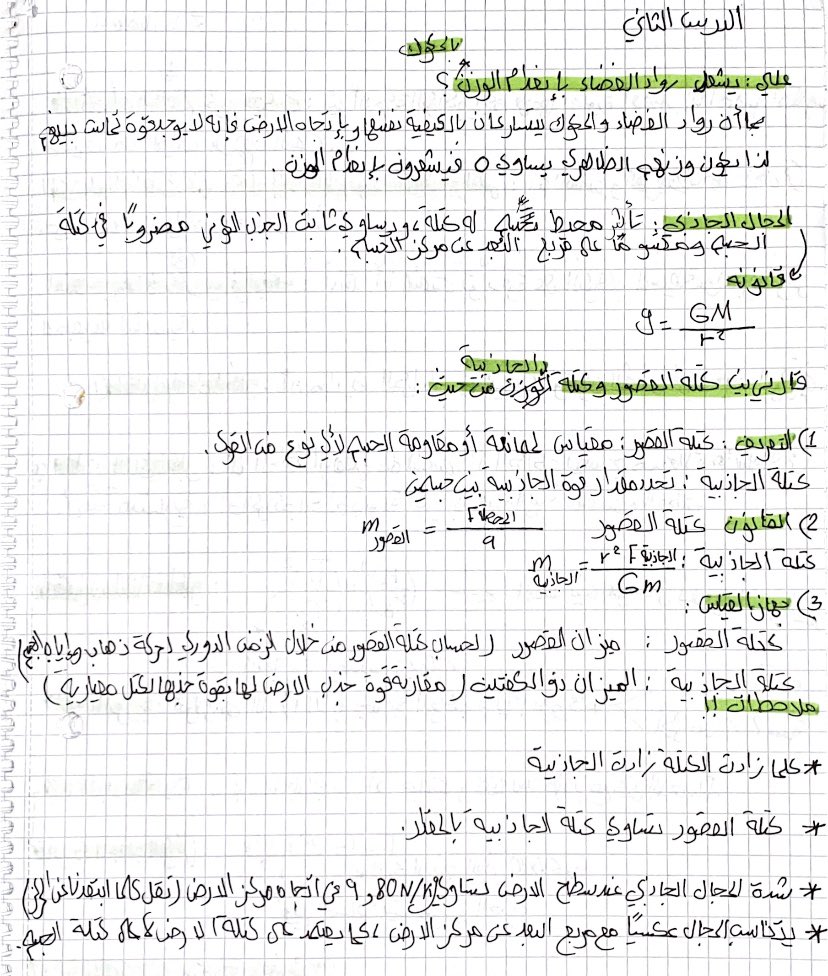 الدرس الثاني
بالمكوك
علل: يشعر رواد الفضاء بإنعدام الوزن ؟
بما أن رواد الفضاء والمكوك يتسارعان بالكيفية نفسها وبإتجاه الارض فإنه لا يوجد قوة تماس بينهم
لذا يكون وزنهم الظاهري يساوي 0 فيشعرون بإنعدام الوزن .
المجال الجاذبي : تأثير محيط بجسم له كتلة ، ويساوي ثابت الجذب الكوني مضروبًا في كتلة
الجسم ومقسومًا على مربع البعد عن مركز الجسم .
قانونه
g = GM / r²
والجاذبية
قارني بين كتلة القصور وكتلة من حيث :
1) التعريف : كتلة القصور : مقياس لممانعة أو مقاومة الجسم لأي نوع من القوى .
كتلة الجاذبية : تحدد مقدار قوة الجاذبية بين جسمين
2) القانون كتلة القصور m القصور = F المحصلة / a
كتلة الجاذبية : m الجاذبية = r² F الجاذبية / Gm
3) جهاز القياس :
كتلة القصور : ميزان القصور ( لحساب كتلة القصور من خلال الزمن الدوري لحركة ذهاب وإياب الجسم )
كتلة الجاذبية : الميزان ذو الكفتين ( مقارنة قوة جذب الارض لها بقوة جذبها لكتل معيارية )
ملاحظات !!
* كلما زادت الكتلة زادت الجاذبية
* كتلة القصور تساوي كتلة الجاذبية بالمقدار.
* شدة المجال الجاذبي عند سطح الارض تساوي 9,80 N/kg في اتجاه مركز الارض ( تقل كلما ابتعدنا عن )
* يتناسب المجال عكسيًا مع مربع البعد عن مركز الارض ، كما يعتمد على كتلة الارض لا على كتلة الجسم.